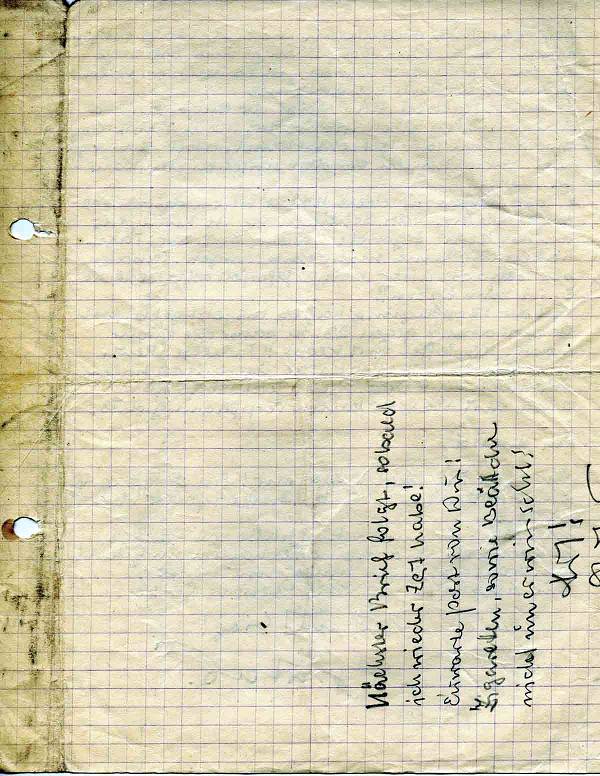 Nächster Brief folgt, sobald
ich wieder Zeit habe!
Erwarte Post von Dir!
Zigaretten, sowie Blättchen
nicht unerwünscht!